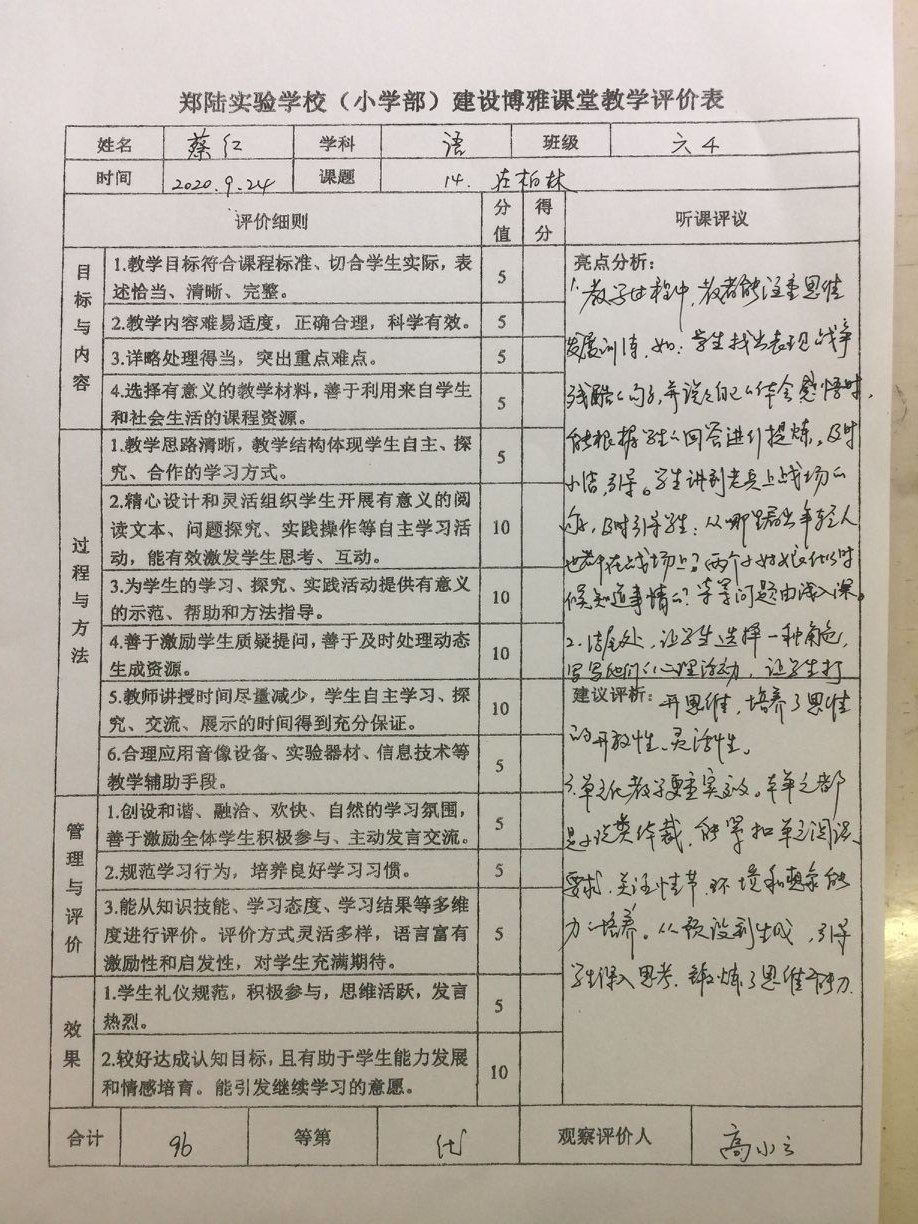 郑陆实验学校（小学部）建设博雅课堂教学评价表
姓名 蔡红 学科 语 班级 六4
时间 2020.9.24 课题 14. 在柏林
评价细则 分值 得分 听课评议
目标与内容
1.教学目标符合课程标准、切合学生实际，表
述恰当、清晰、完整。 5
2.教学内容难易适度，正确合理，科学有效。 5
3.详略处理得当，突出重点难点。 5
4.选择有意义的教学材料，善于利用来自学生
和社会生活的课程资源。 5
过程与方法
1.教学思路清晰，教学结构体现学生自主、探
究、合作的学习方式。 5
2.精心设计和灵活组织学生开展有意义的阅
读文本、问题探究、实践操作等自主学习活
动，能有效激发学生思考、互动。 10
3.为学生的学习、探究、实践活动提供有意义
的示范、帮助和方法指导。 10
4.善于激励学生质疑提问，善于及时处理动态
生成资源。 10
5.教师讲授时间尽量减少，学生自主学习、探
究、交流、展示的时间得到充分保证。 10
6.合理应用音像设备、实验器材、信息技术等
教学辅助手段。 5
管理与评价
1.创设和谐、融洽、欢快、自然的学习氛围，
善于激励全体学生积极参与、主动发言交流。 5
2.规范学习行为，培养良好学习习惯。 5
3.能从知识技能、学习态度、学习结果等多维
度进行评价。评价方式灵活多样，语言富有
激励性和启发性，对学生充满期待。 5
效果
1.学生礼仪规范，积极参与，思维活跃，发言
热烈。 5
2.较好达成认知目标，且有助于学生能力发展
和情感培育。能引发继续学习的意愿。 10
亮点分析：
1.教学过程中，教者能注重思维
发展训练，如：学生找出表现战争
残酷的句子，并说说自己的体会感悟时，
能根据学生的回答进行提炼。及时
小结，引导。学生讲到老兵上战场的
，及时引导学生：从哪里看出年轻人
也在战场上？两个小姑娘什么时
候知道事情的？等等问题由浅入深。
2.结尾处，让学生选择一种角色，
写写他们的心理活动，让学生打
建议评析：开思维，培养了思维
的开放性、灵活性。
3.单元化教学更重实效。本单元都
是小说类体裁，能紧扣单元阅读
要求，关注情节、环境和想象能
力的培养。从预设到生成，引导
学生深入思考，锻炼了思维能力.
合计 96 等第 优 观察评价人 高小